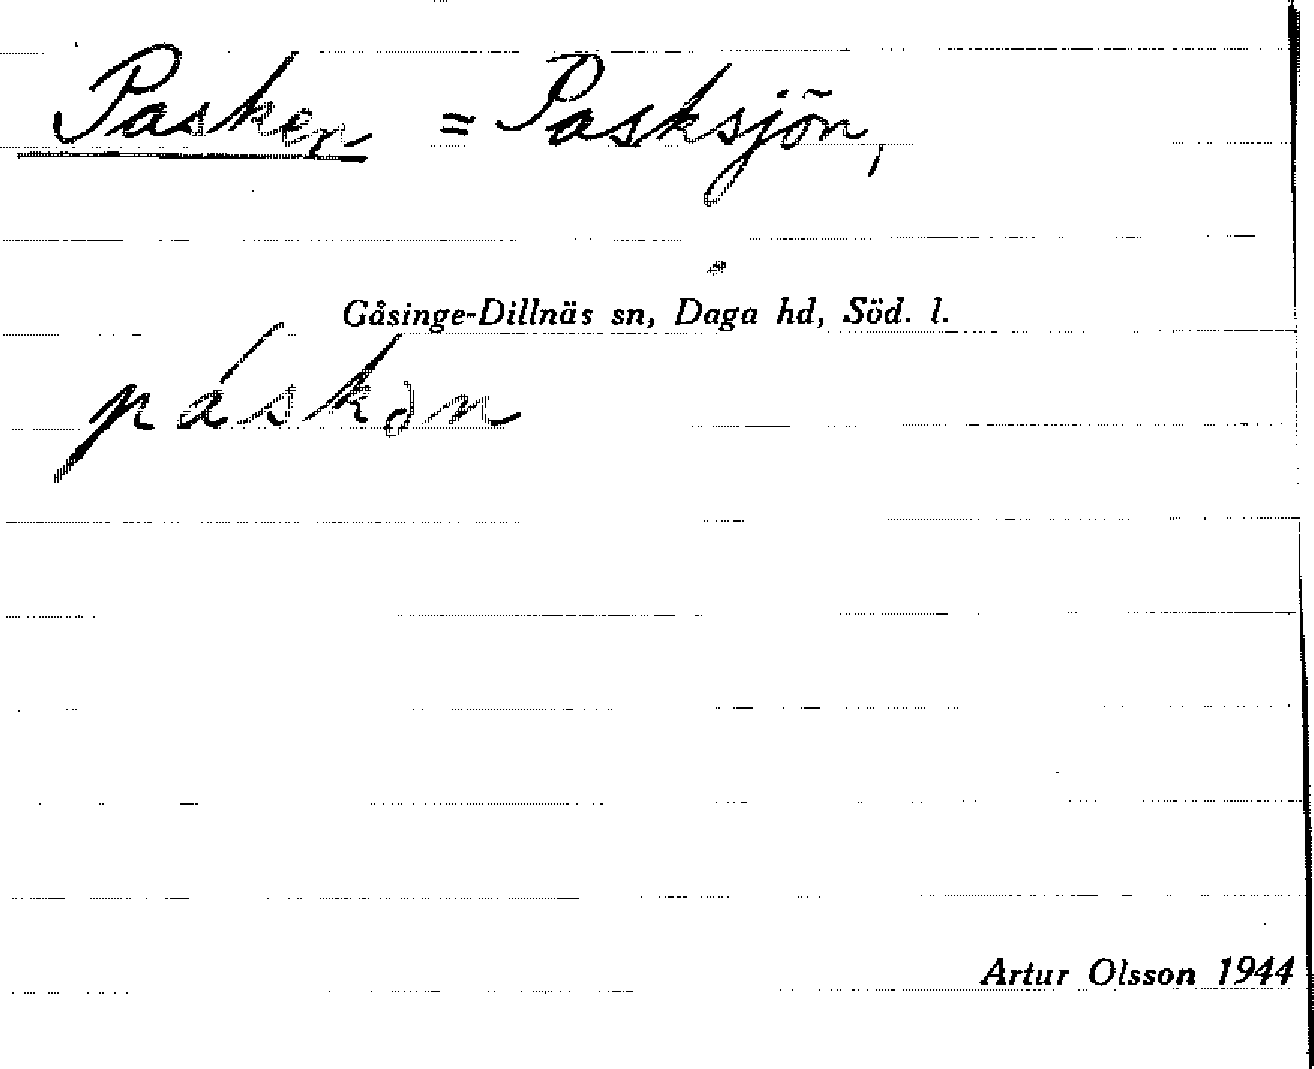 Pasken = Pasksjön,
Gåsinge-Dillnäs sn, Daga hd, Söd. l.
páskən
Artur Olsson 1944